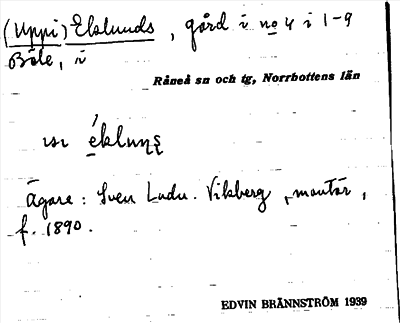 (Uppi) Eklunds, gård i no 4 i 1-9
Böle, i
Råneå sn och tg, Norrbottens län
éklunς
Ägare: Sven Ludv. Vikberg, montör,
f. 1890.
EDVIN BRÄNNSTRÖM 1939